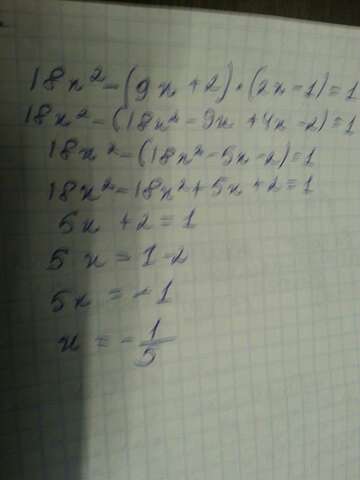 18x² - (9x + 2) · (2x - 1) = 1
18x² - (18x² - 9x + 4x - 2) = 1
18x² - (18x² - 5x - 2) = 1
18x² - 18x² + 5x + 2 = 1
5x + 2 = 1
5x = 1 - 2
5x = -1
x = -1/5